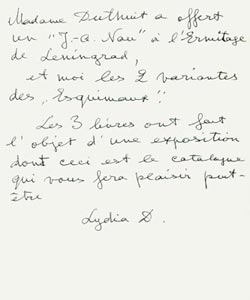 Madame Duthuit a offert
un "J.-a. Nau" à l'Ermitage
de Leningrad,
et moi les 2 variantes
des „Esquimaux".
Les 3 livres ont fait
l'objet d'une exposition
dont ceci est le catalogue
qui vous fera plaisir peut-
être
Lydia D.